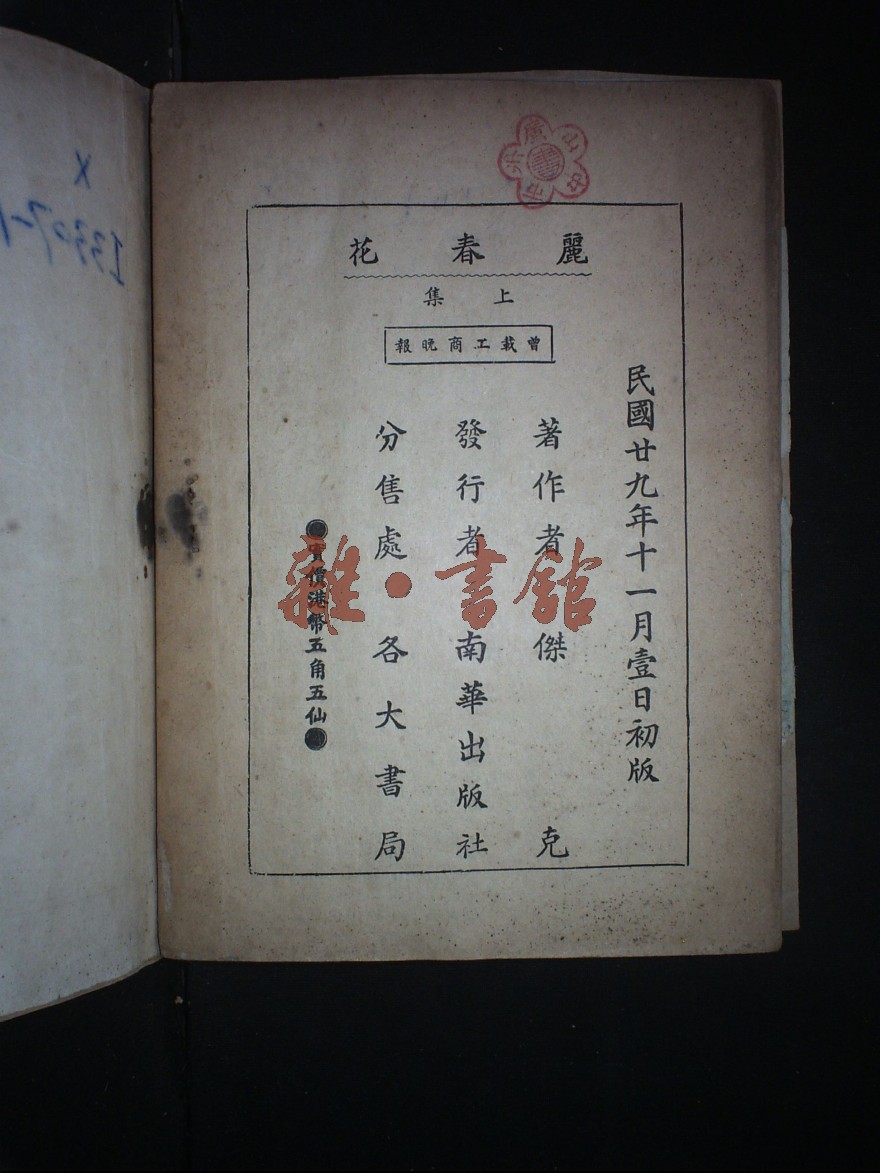 麗春花
上集
曾載工商晚報
民國廿九年十一月壹日初版
著作者 傑克
發行者 南華出版社
分售處 各大書局
實價港幣五角五仙
雜·書館